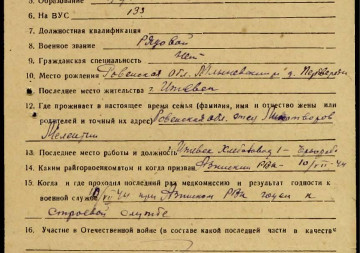 5. Образование
6. На ВУС 133
7. Должностная квалификация
8. Военное звание Рядовой
9. Гражданская специальность нет
10. Место рождения Ровенская обл.
11. Последнее место жительства г. Ижевск
12. Где проживает в настоящее время семья (фамилия, имя и отчество жены или
родителей и точный их адрес) Ровенская обл.
13. Последнее место работы и должность Ижевск
14. Каким райгорвоенкоматом и когда призван РВК 10/VII-44
15. Когда и где проходил последний раз медкомиссию и результат годности к
военной службе 10/VII 44 при РВК годен к
строевой службе
16. Участие в Отечественной войне (в составе какой последней части в качестве